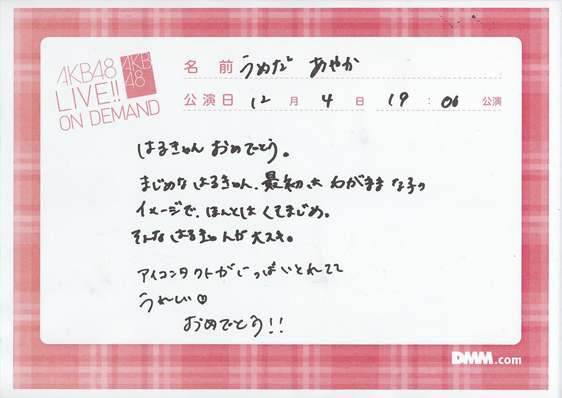 AKB48
LIVE!!
ON DEMAND
AKB
48
名 前 うめだ あやか
公演日 12 月 4 日 19 : 00 公演
はるきゅん おめでとう。
まじめな はるきゅん、最初は わがまま な子の
イメージで、ほんとは くてまじめ。
そんな はるきゅんが 大スキ。
アイコンタクトがいっぱいとれてて
うれしい♡
おめでとう!!
DMM.com